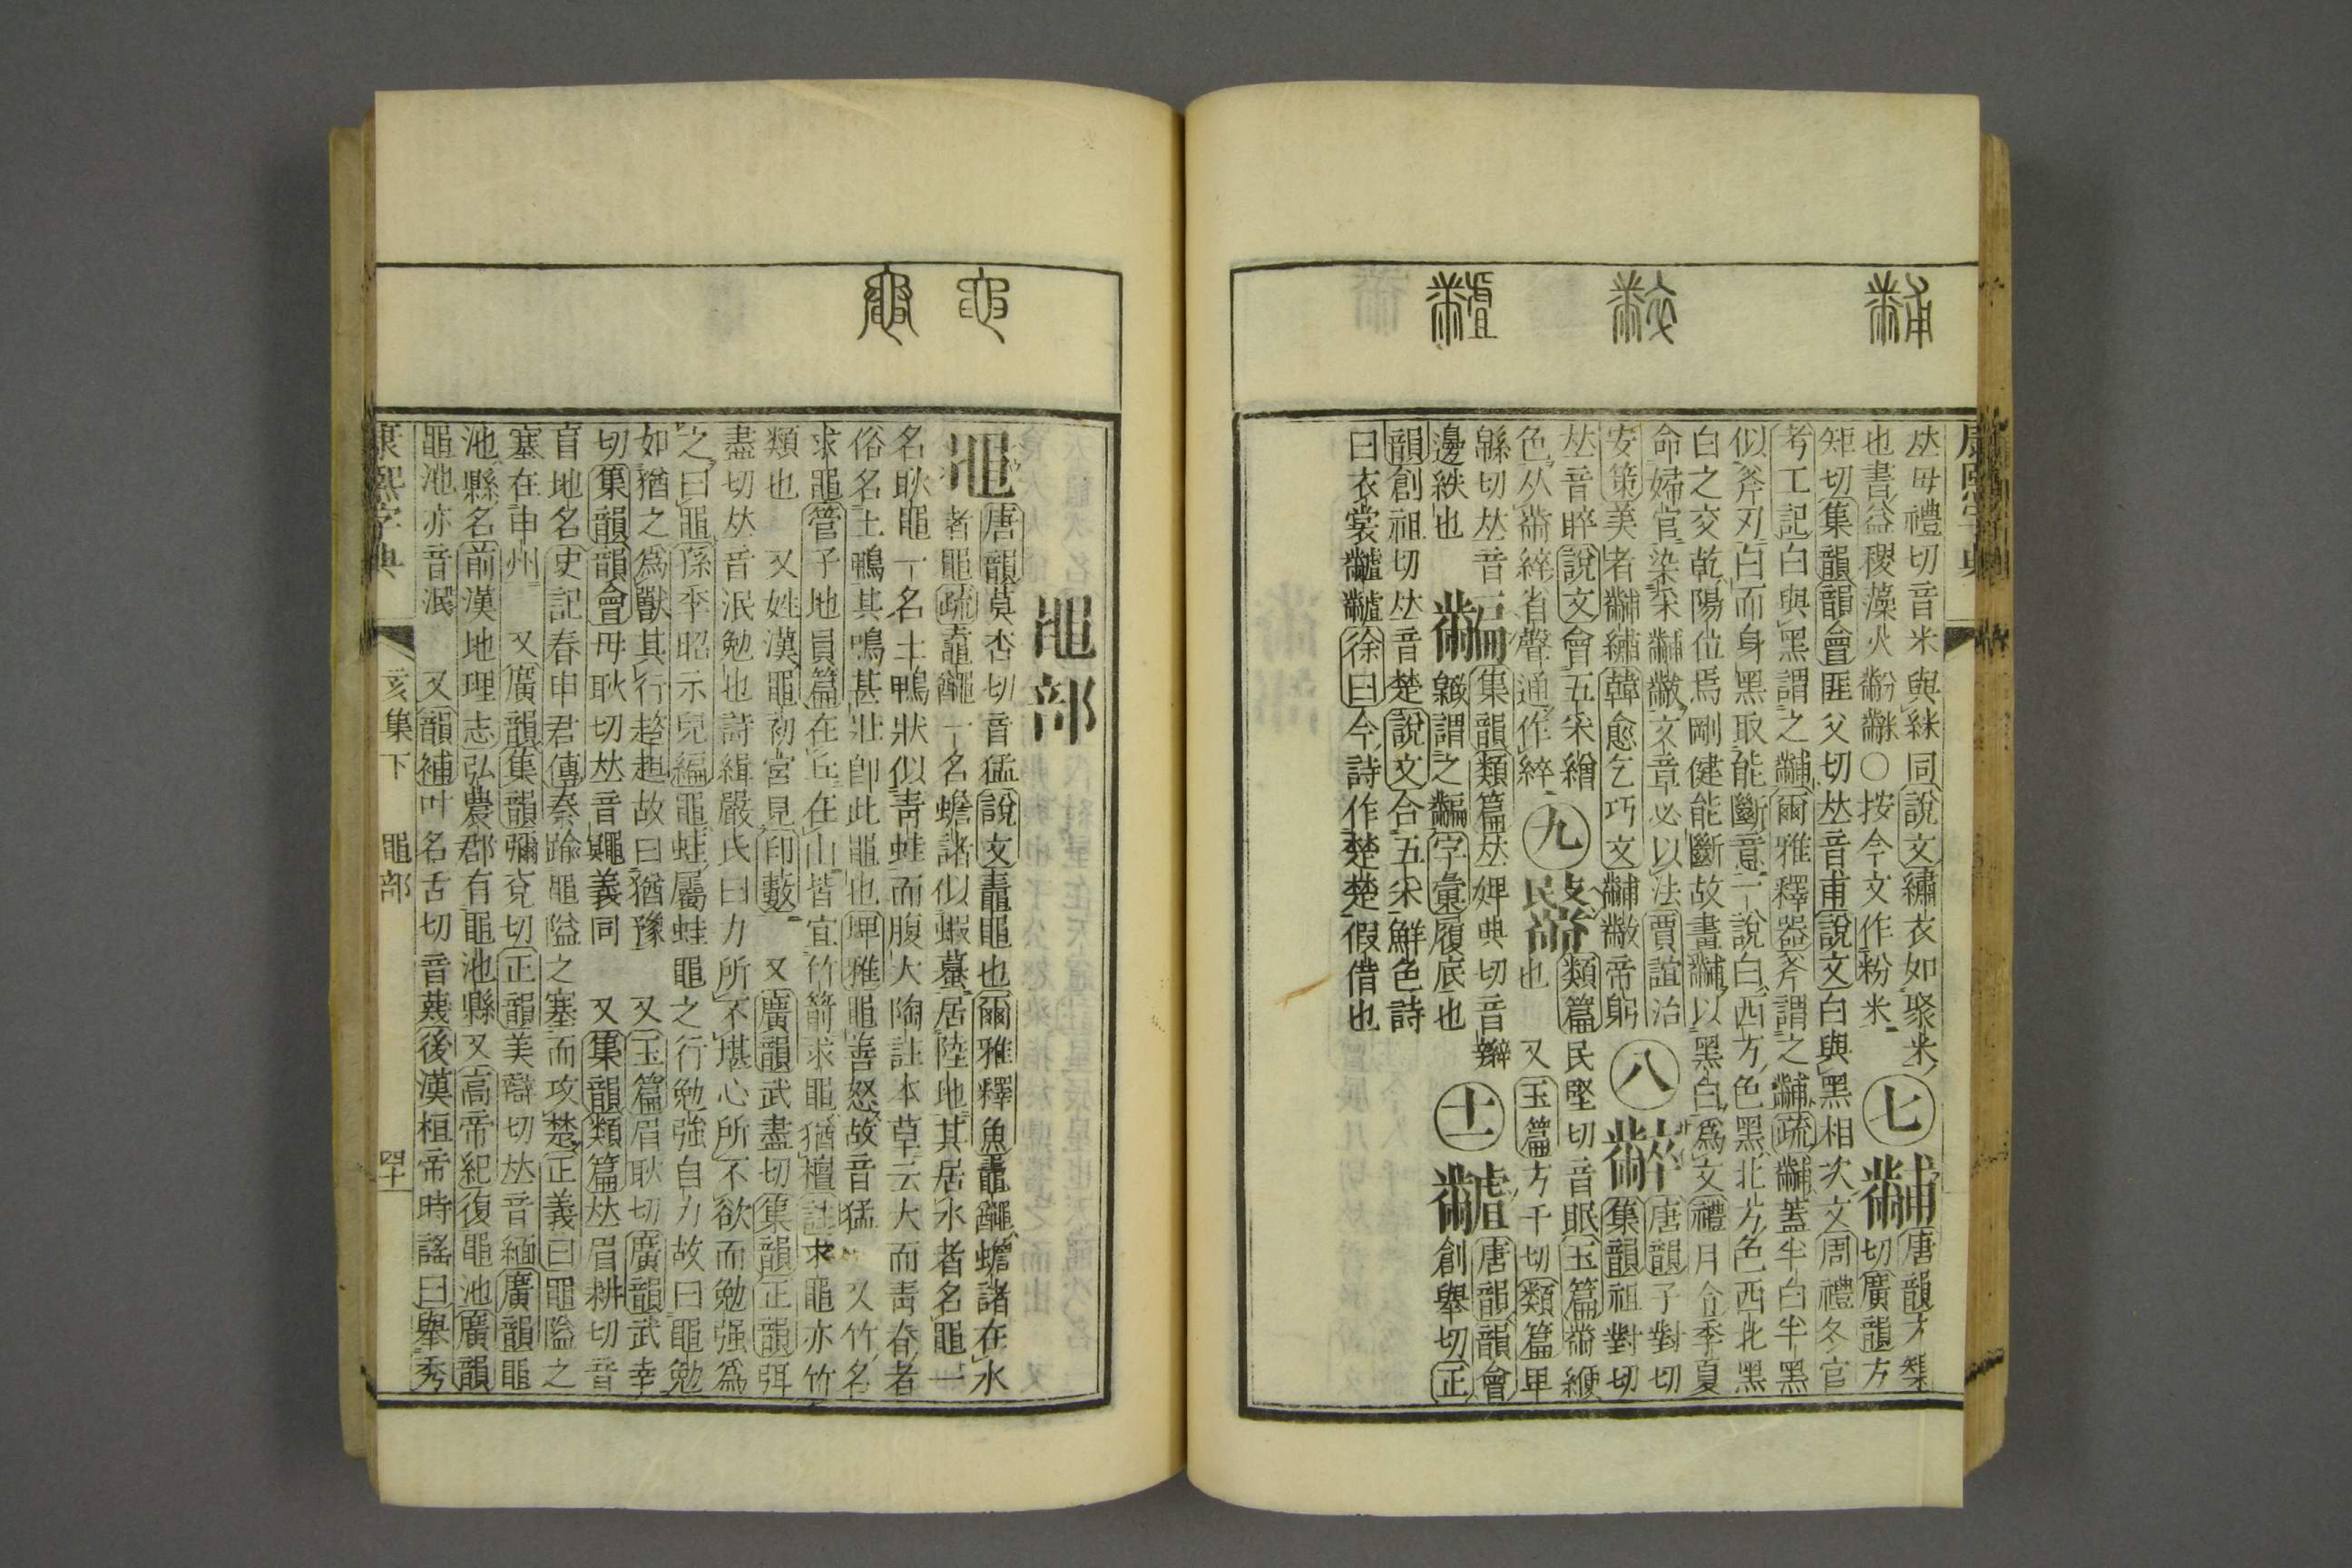 𠀤母禮切音米與絖同說文繡衣如聚米
也書益稷藻火粉黺○按今文作粉米
七
黼
唐韻方榘
切廣韻方
矩切集韻韻會匪父切𠀤音甫說文白與黑相次文周禮冬官
考工記白與黑謂之黼爾雅釋器斧謂之黼疏黼蓋半白半黑
似斧刃白而身黑取能斷意一說白西方色黑北方色西北黑
白之交乾陽位焉剛健能斷故畫黼以黑白爲文禮月令季夏
命婦官染采黼黻文章必以法賈誼治
安策美者黼繡韓愈乞巧文黼黻帝躬
八
黺
唐韻子對切
集韻祖對切
𠀤音晬說文會五采繒
色从黹綷省聲通作綷
九
類篇民堅切音眠玉篇黹緶
也 又玉篇方千切類篇卑
緜切𠀤音
邊紩也
集韻類篇𠀤婢典切音辮
緶謂之字彙履底也
十一
唐韻韻會
創舉切正
韻創祖切𠀤音楚說文合五采鮮色詩
曰衣裳黼黼徐曰今詩作楚楚假借也
康熙字典
黽部
黽
唐韻莫杏切音猛說文鼃黽也爾雅釋魚鼁𪓰蟾諸在水
者黽疏鼁𪓰一名蟾諸似蝦蟇居陸地其居水者名黽一
名耿黽一名土鴨狀似靑蛙而腹大陶註本草云大而靑脊者
俗名土鴨其鳴甚壯卽此黽也埤雅黽善怒故音猛 又竹名
求黽管子地員篇在丘在山皆宜竹箭求黽猶檀註求黽亦竹
類也 又姓漢黽初宮見印藪 又廣韻武盡切集韻正韻弭
盡切𠀤音泯勉也詩緝嚴氏曰力所不堪心所不欲而勉强爲
之曰黽孫季昭示兒編黽蛙屬蛙黽之行勉強自力故曰黽勉
如猶之爲獸其行趑趄故曰猶豫 又玉篇眉耿切廣韻武幸
切集韻韻會母耿切𠀤音鼆義同 又集韻類篇𠀤眉耕切音
盲地名史記春申君傳秦踰黽隘之塞而攻楚正義曰黽隘之
塞在申州 又廣韻集韻彌兗切正韻美辯切𠀤音緬廣韻黽
池縣名前漢地理志弘農郡有黽池縣又高帝紀復黽池廣韻
黽池亦音泯 又韻補叶名舌切音蔑後漢桓帝時謠曰舉秀
康熙字典
亥集下
黽部
四十